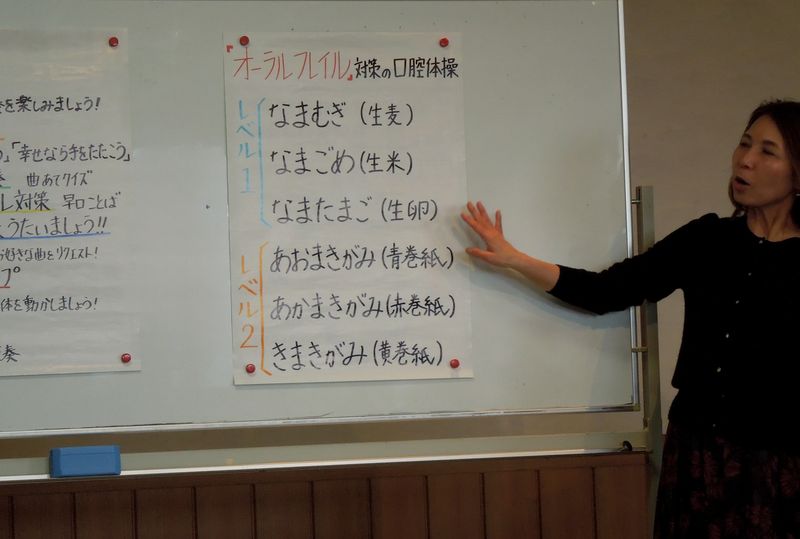 を楽しみましょう!
「幸せなら手をたたこう」
奏 曲あてクイズ
レ対策 早口ことば
うたいましょう!!
好きな曲をリクエスト!
プ
体を動かしましょう!
奏
『オーラルフレイル』対策の口腔体操
レベル1
なまむぎ(生麦)
なまごめ(生米)
なまたまご(生卵)
レベル2
あおまきがみ(青巻紙)
あかまきがみ(赤巻紙)
きまきがみ(黄巻紙)